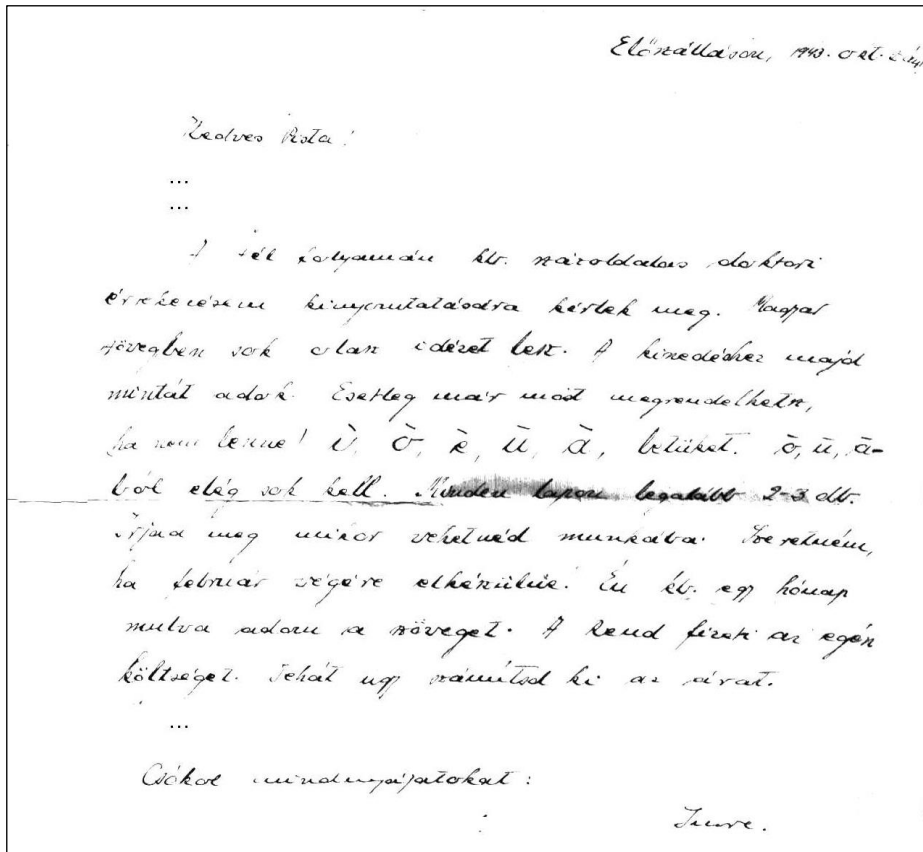 Előszálláson, 1943. okt.
Kedves Pista!
...
...
A tél folyamán kb. százoldalas doktori
értekezésem kinyomtatására kérlek meg. Magyar
szövegben sok olasz idézet lesz. A kiszedéshez majd
mintát adok. Esetleg már most megrendelhetsz,
ha nem lenne! ì, ò, è, ù, à, betüket. ò, ù, à-
ból elég sok kell. Minden lapon legalább 2-3 db.
Irjad meg mikor vehetnéd munkába. Szeretném,
ha február végére elkészülne. Én kb. egy hónap
mulva adom a szöveget. A Rend fizeti az egész
költséget. Tehát ugy számítsd ki az árat.
...
Csókol mindnyájatokat:
Imre.